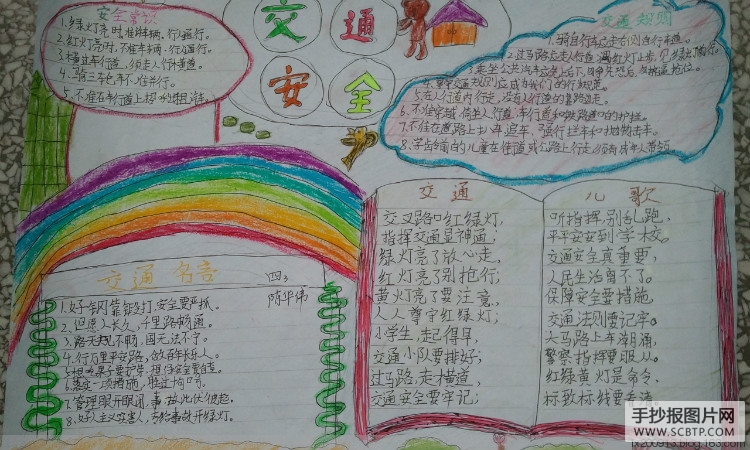 安全常识
1.绿灯亮时,准车辆、行人通行。
2.红灯亮时,不准车辆、行人通行。
3.横过车行道,须走人行横道。
4.骑三轮车不准并行。
5.不准在车行道上
交通
安全
交通规则
1.骑自行车必走右侧自行车道。
2.过马路必走人行道,遇
3.乘坐公共汽车
4.遵守交通规则应成为我们的行为规范。
5.在人行道内行走,没有人行道的靠路边走。
6.不准穿越、倚坐人行道、车行道和铁路道口的护栏。
7.不准在道路上扒车、追车、强行拦车和抛物击车。
8.学龄前的儿童在街道或公路上行走,须有成年人带领。
交通名言
四3
陈华伟
1.好钢靠锻打,安全要严抓。
2.但愿人长久,千里路畅通。
3.路无规不畅,国无法不宁。
4.行万里平安路,做百年长乐人。
5.想吃果子要护林,想保安全要自遵。
6.落实一项措施,胜过
7.管理眼开眼闭,事故此伏彼起。
8.好人主义实害人,
交通
交叉路口红绿灯,
指挥交通显神通;
绿灯亮了放心走,
红灯亮了别抢行;
黄灯亮了要注意,
人人遵守红绿灯;
小学生,起得早,
交通小队要排好;
过马路,走横道,
交通安全要牢记;
儿歌
听指挥,别乱跑,
平平安安到学校。
交通安全真重要,
人民生活离不了。
保障安全要措施,
交通法则要记牢。
大马路上车潮涌,
警察指挥要服从。
红绿黄灯是命令,
标致标线要
手抄报图片网
WWW.SCBTP.COM